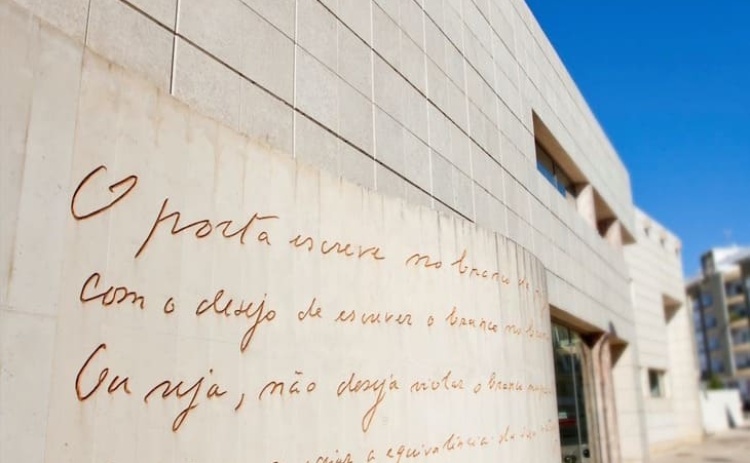 O poeta escreve no branco da
com o desejo de escrever o branco no branco
Ou seja, não deseja violar o branco
a equivalência: da